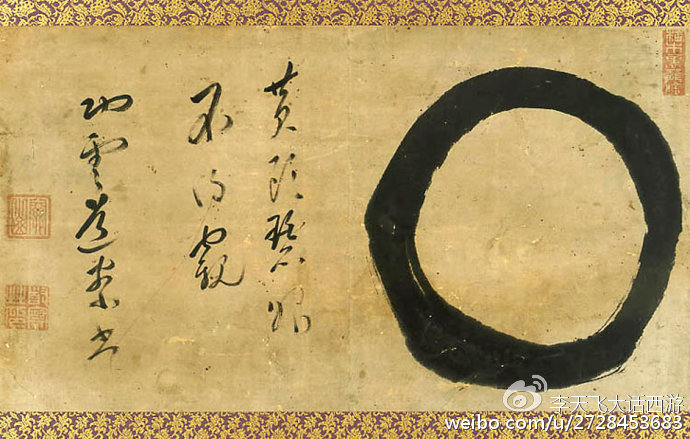 黄頭碧眼
不得窺
功雲道書
李天飞大话西游
weibo.com/u/2728453683